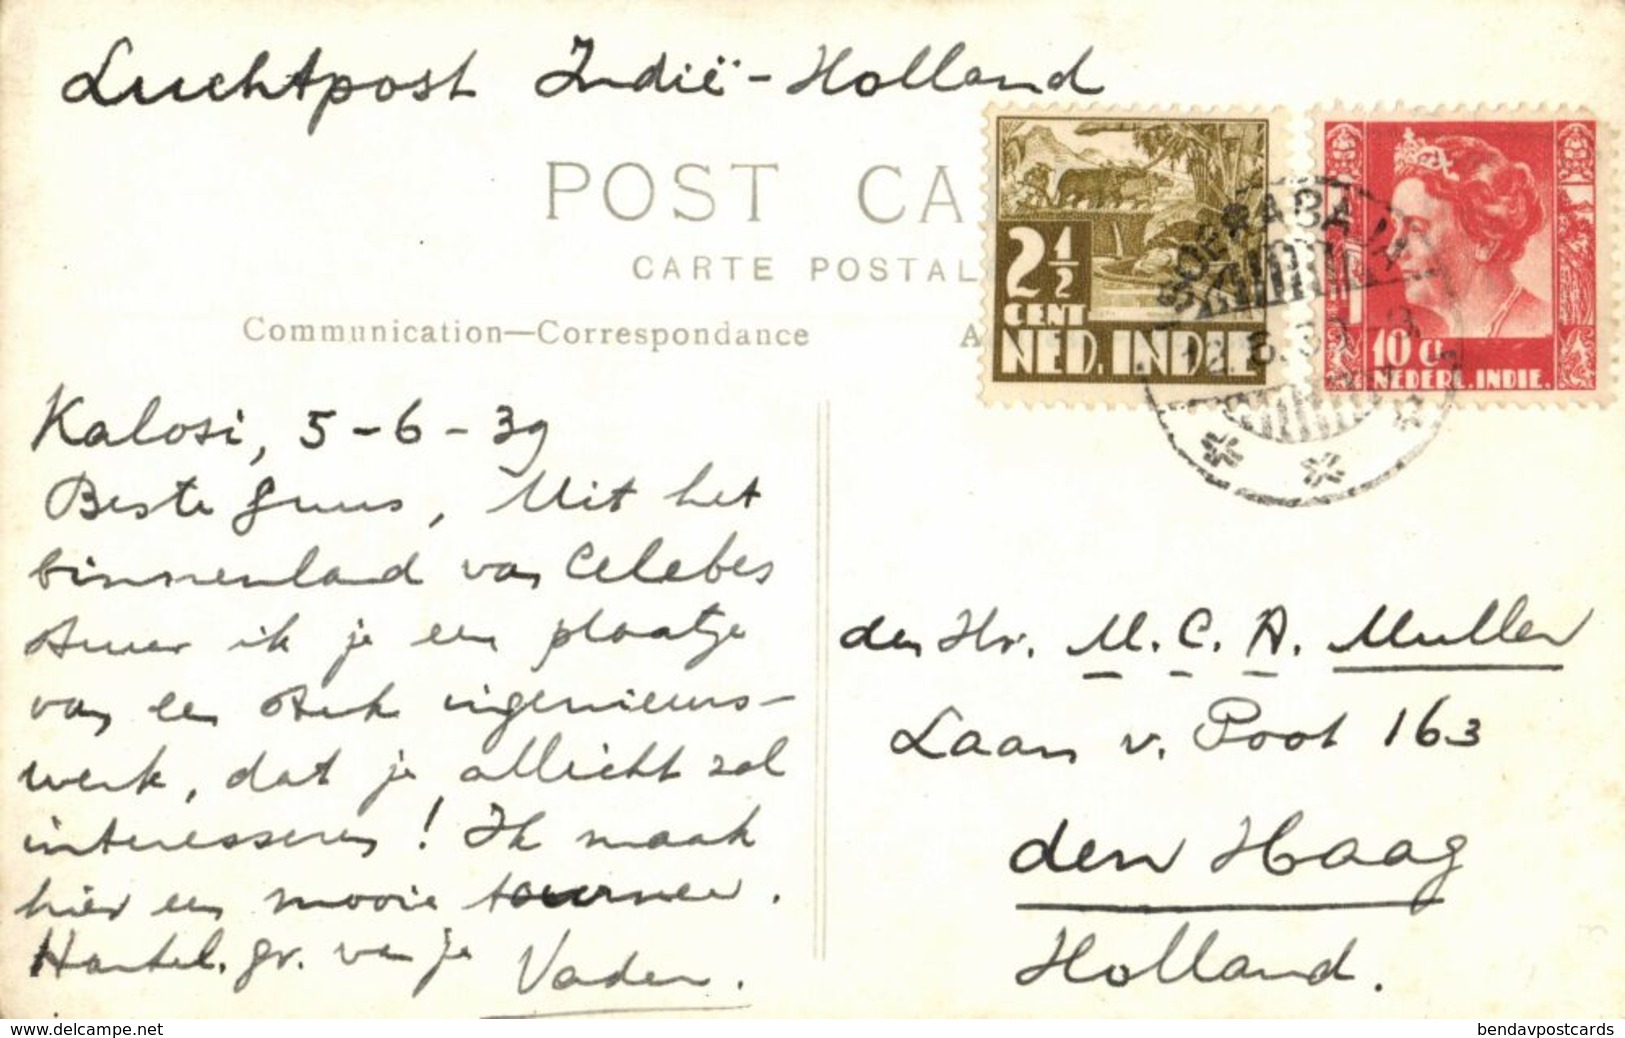 Luchtpost Indië-Holland
POST CA
CARTE POSTAL
Communication—Correspondance
A
2 1/2
CENT
NED. INDIE
SOERABAJA
10 ct
NEDERL. INDIE.
Kalosi, 5-6-39
Beste Guus, Uit het
binnenland van Celebes
stuur ik je een plaatje
van een sterk ingenieurs-
werk, dat je allicht zal
interesseren! Ik maak
hier een mooie tournee.
Hartel. gr. van je Vader.
den Hr. M. C. A. Muller
Laan v. Poot 163
den Haag
Holland.
www.delcampe.net
bendavpostcards